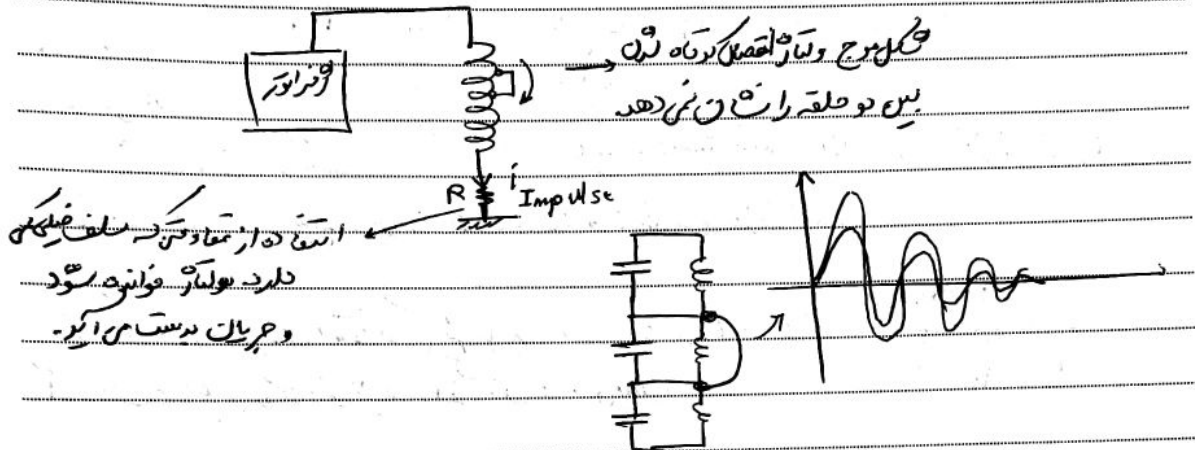 ژنراتور
شکل موج ولتاژ اتصال کوتاه شدن
بین دو حلقه را نشان نمی دهد.
R
i
Impulse
استفاده از مقاومتی که سلف خیلی کمی
دارد. ولتاژ خوانده شود
و جریان بدست می آید.